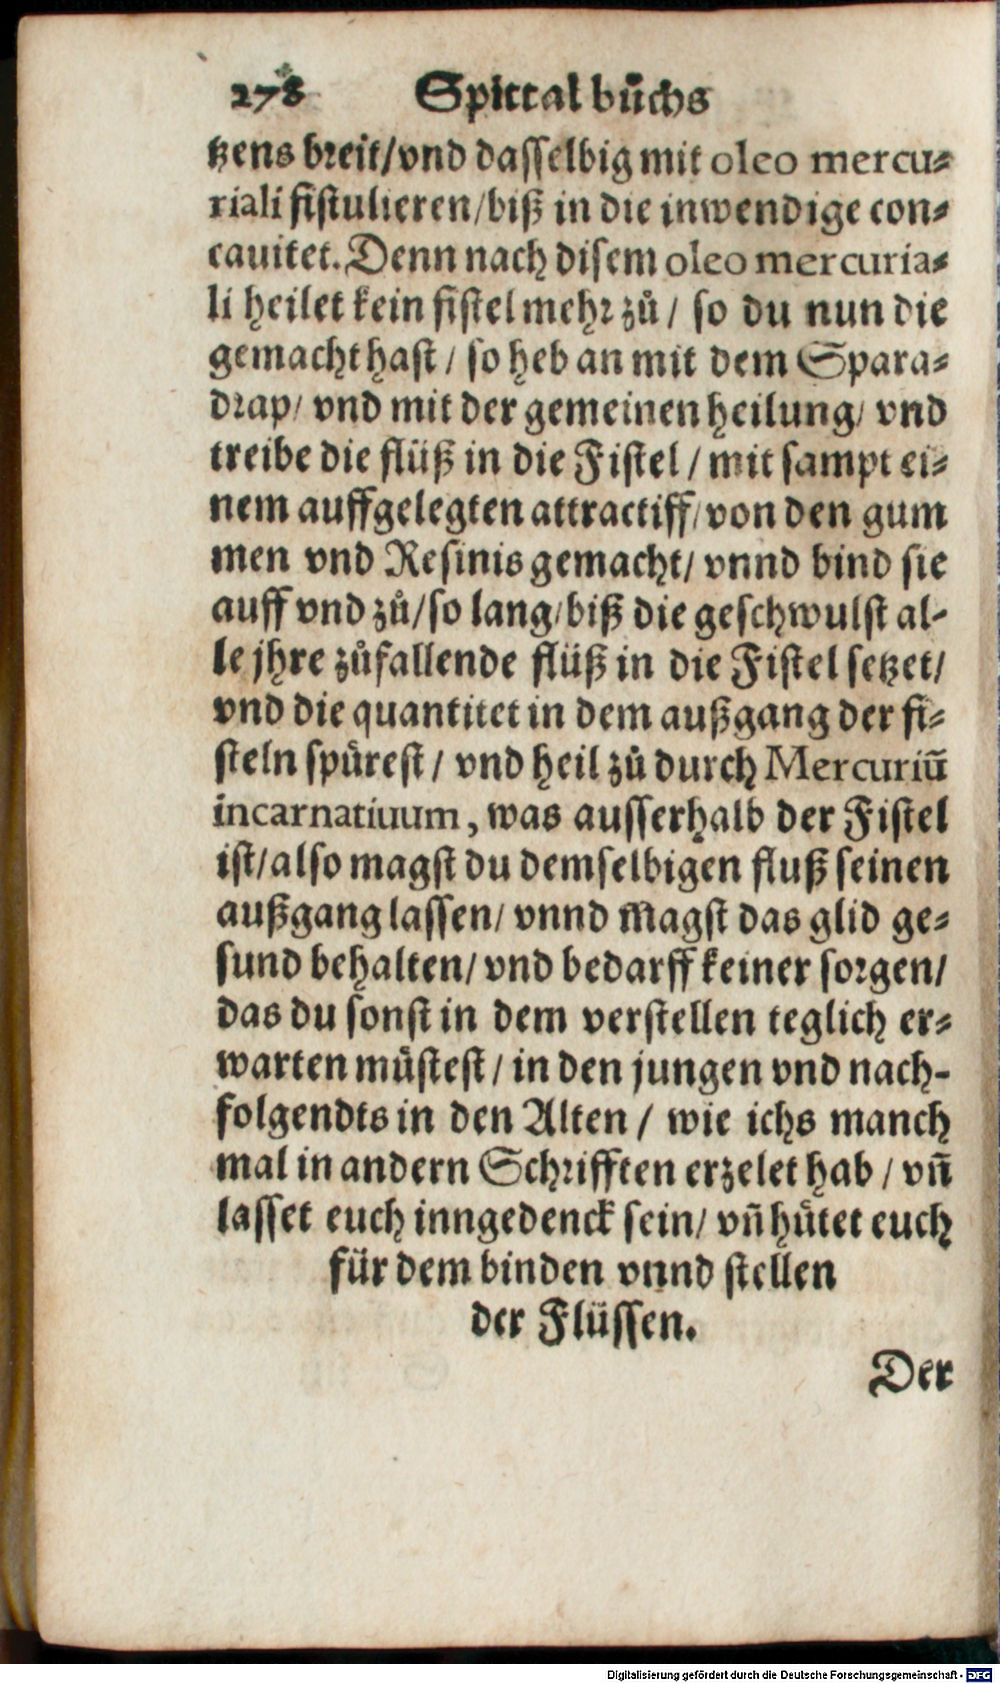 278 Spittal bůchs
tzens breit/vnd dasselbig mit oleo mercu-
riali fistulieren/biß in die inwendige con-
cauitet. Denn nach disem oleo mercuria-
li heilet kein fistel mehr zů/ so du nun die
gemacht hast/ so heb an mit dem Spara-
drap/ vnd mit der gemeinen heilung/ vnd
treibe die flüß in die Fistel/ mit sampt ei-
nem auffgelegten attractiff/ von den gum
men vnd Resinis gemacht/ vnnd bind sie
auff vnd zů/ so lang/ biß die geschwulst al-
le jhre zůfallende flüß in die Fistel setzet/
vnd die quantitet in dem außgang der fi-
steln spürest/ vnd heil zů durch Mercuriū
incarnatiuum, was ausserhalb der Fistel
ist/ also magst du demselbigen fluß seinen
außgang lassen/ vnnd magst das glid ge-
sund behalten/ vnd bedarff keiner sorgen/
das du sonst in dem verstellen teglich er-
warten müstest/ in den jungen vnd nach-
folgendts in den Alten/ wie ichs manch
mal in andern Schrifften erzelet hab/ vñ
lasset euch inngedenck sein/ vñ hütet euch
für dem binden vnnd stellen
der Flüssen.
Der
Digitalisierung gefördert durch die Deutsche Forschungsgemeinschaft - DFG